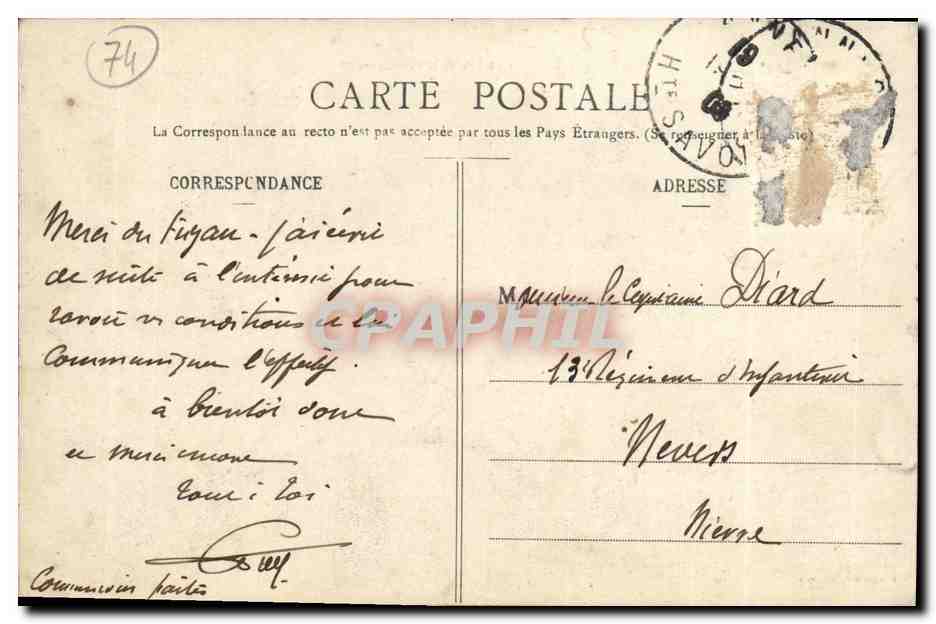 74
CARTE POSTALE
La Correspondance au recto n'est pas acceptée par tous les Pays Étrangers. (Se renseigner à la Poste)
Hte SAVOIE
CORRESPONDANCE
Merci du tuyau - j'ai écrit
de suite à l'intéressé pour
savoir ses conditions et lui
communiquer l'effectif.
à bientôt donc
et merci encore
tout à toi
Commissions faites
ADRESSE
Monsieur le Capitaine Diard
13e Régiment d'Infanterie
Nevers
Nièvre
CPAPHIL